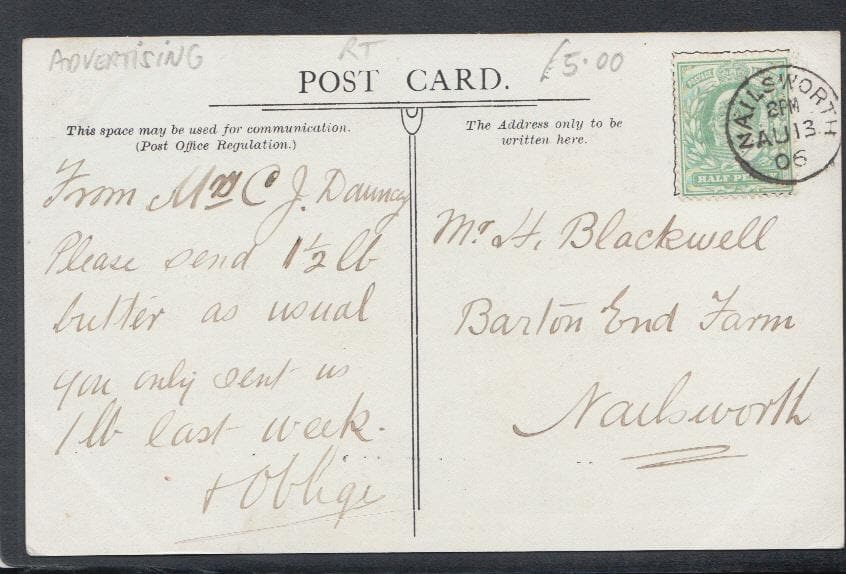 ADVERTISING
RT
£5.00
POST CARD.
This space may be used for communication.
(Post Office Regulation.)
The Address only to be
written here.
HALF PENNY
NAILSWORTH
2PM
AU 13
06
From Mrs C J. Dauncey
Please send 1½ lb
butter as usual
you only sent us
1 lb last week.
& Oblige
Mr H. Blackwell
Barton End Farm
Nailsworth